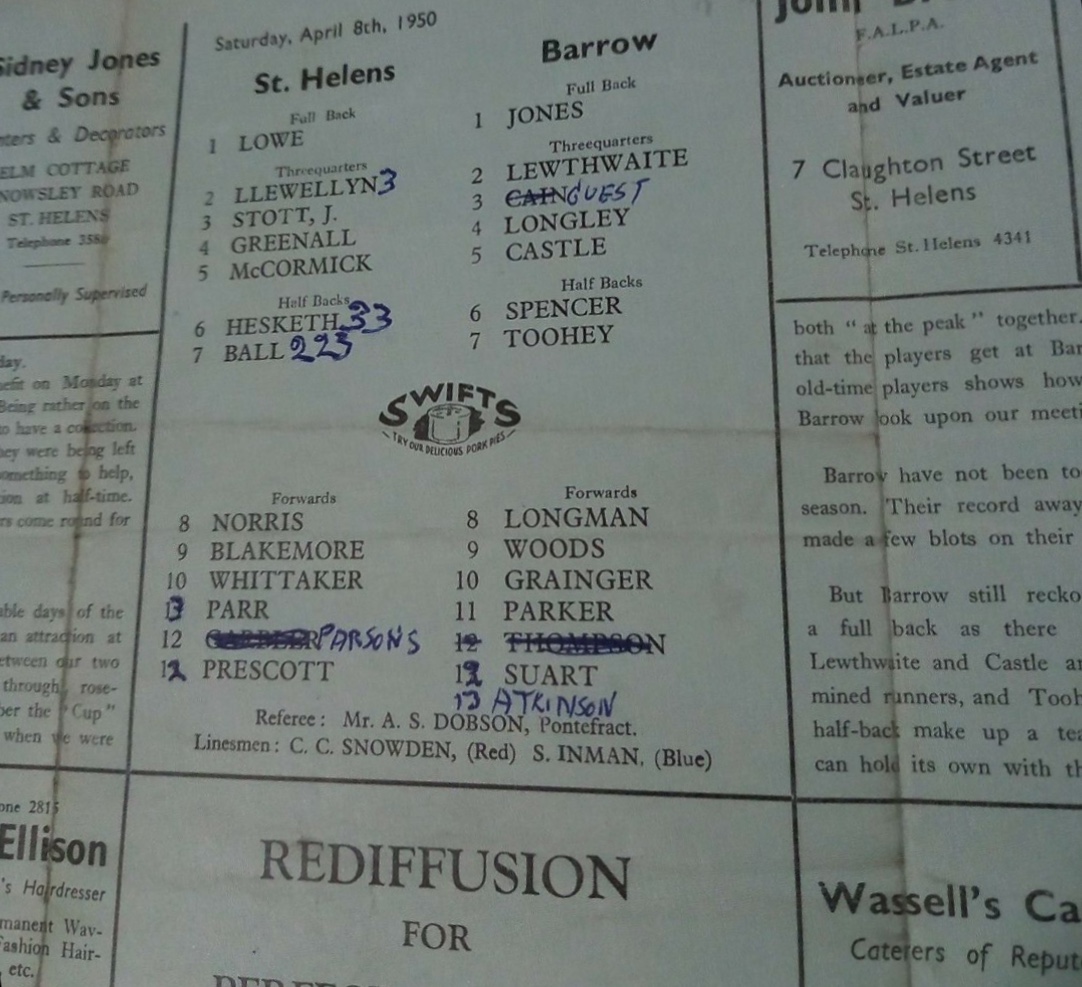 Sidney Jones
& Sons
& Decorators
ELM COTTAGE
KNOWSLEY ROAD
ST. HELENS
Telephone
Personally Supervised
day.
on Monday at
Being rather on the
to have a collection.
they were being left
something to help,
at half-time.
come round for
days of the
an attraction at
between our two
through, rose-
the "Cup"
when we were
2815
Ellison
's Hairdresser
Wav-
Fashion Hair-
etc.
Saturday, April 8th, 1950
St. Helens
Full Back
1 LOWE
Threequarters
2 LLEWELLYN 3
3 STOTT, J.
4 GREENALL
5 McCORMICK
Half Backs
6 HESKETH 33
7 BALL 223
Barrow
Full Back
1 JONES
Threequarters
2 LEWTHWAITE
3 CAIN GUEST
4 LONGLEY
5 CASTLE
Half Backs
6 SPENCER
7 TOOHEY
SWIFTS
TRY OUR DELICIOUS PORK PIES
Forwards
8 NORRIS
9 BLAKEMORE
10 WHITTAKER
13 PARR
12 PARSONS
12 PRESCOTT
Forwards
8 LONGMAN
9 WOODS
10 GRAINGER
11 PARKER
12 THOMPSON
12 SUART
13 ATKINSON
Referee: Mr. A. S. DOBSON, Pontefract.
Linesmen: C. C. SNOWDEN, (Red) S. INMAN, (Blue)
REDIFFUSION
FOR
F.A.L.P.A.
Auctioneer, Estate Agent
and Valuer
7 Claughton Street
St. Helens
Telephone St. Helens 4341
both "at the peak" together.
that the players get at Bar
old-time players shows how
Barrow look upon our meeti
Barrow have not been to
season. Their record away
made a few blots on their
But Barrow still recko
a full back as there
Lewthwaite and Castle ar
mined runners, and Tooh
half-back make up a tea
can hold its own with th
Wassell's Ca
Caterers of Reput